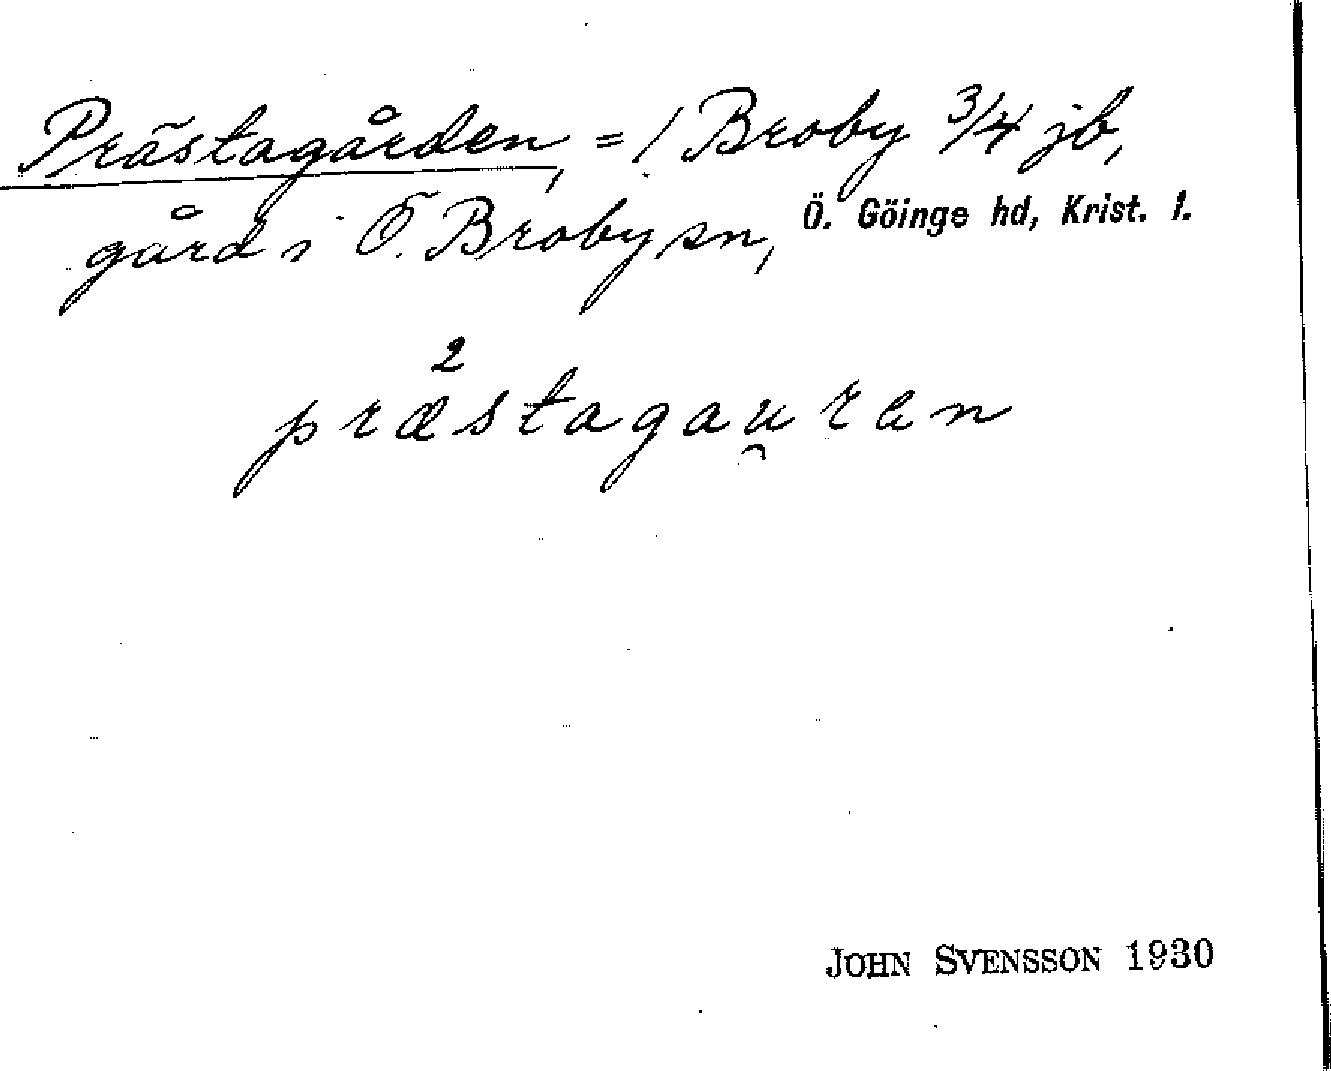 Prästagården, = 1 Broby 3/4 jb,
gård i Ö. Broby sn, Ö. Göinge hd, Krist. l.
2
præstagau̯ren
JOHN SVENSSON 1930